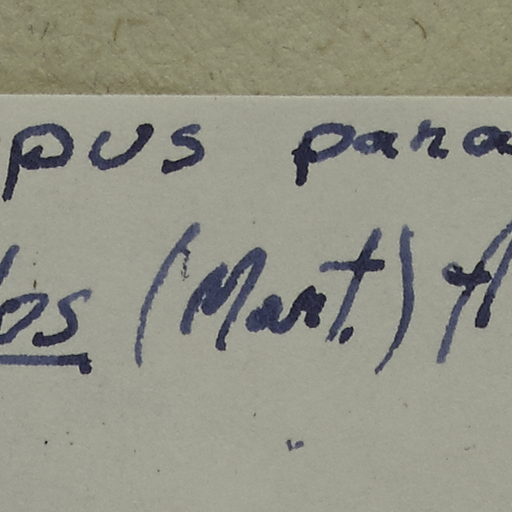 pus para
os (Mart.)